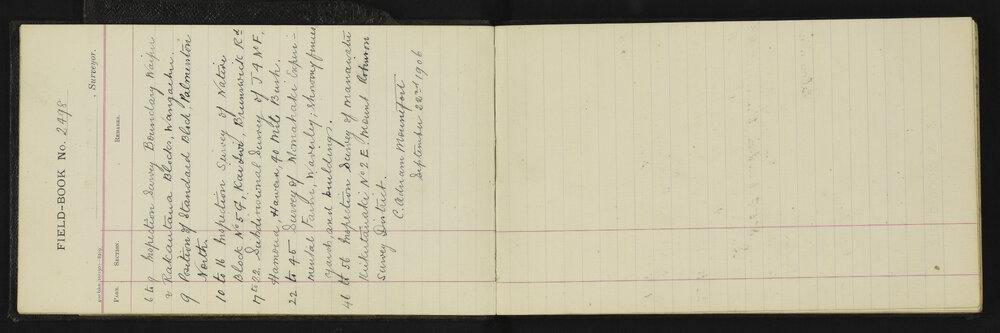 FIELD-BOOK No. 2498
, Surveyor.
PAGE. SECTION. REMARKS.
6 to 9 Inspection Survey Boundary Waipu
& Rakautaua Blocks, Wangaehu
9 Position of Standard Block, Palmerston
North.
10 to 16 Inspection Survey of Native
Block No 5 G, Kai Iwi, Brunswick Rd
17 to 22 Subdivisional Survey of J 4 N F,
Hamoua, Hawera, 40 Mile Bush.
22 to 45 Survey of Momahaki Experi-
mental Farm, Waverley; showing fences
yards, and buildings.
46 to 56 Inspection Survey of Manawatu
Kukutauaki No 2 E. Mount Robinson
Survey District.
C. Adnam Mountfort
September 22nd 1906